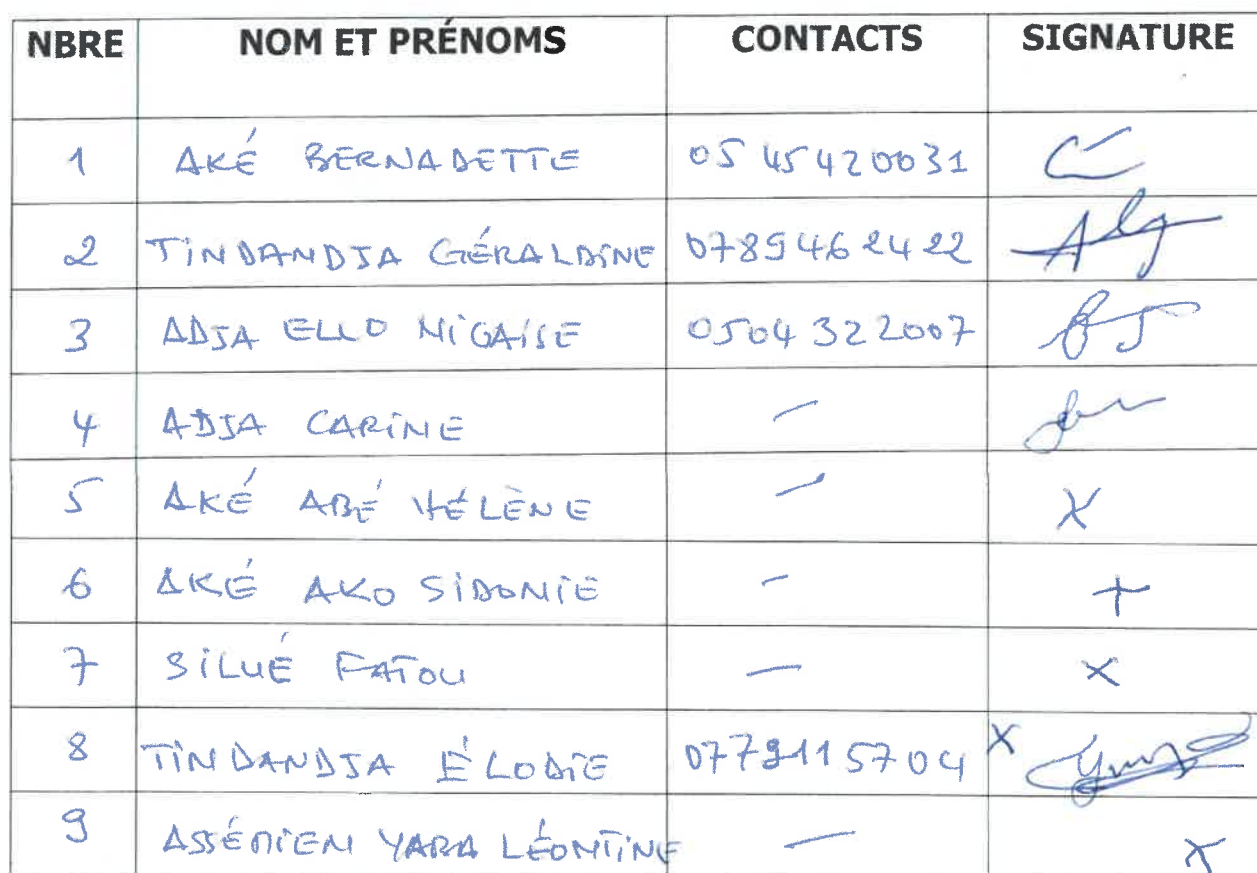 NBRE NOM ET PRÉNOMS CONTACTS SIGNATURE
1 AKÉ BERNADETTE 05 45 42 0031
2 TINDANDJA GÉRALDINE 0789462422
3 ADJA ELLO NIGAISE 0504 322007
4 ADJA CARINE –
5 AKÉ ABÉ HÉLÈNE – X
6 AKÉ AKO SIDONIE – +
7 SILUÉ FATOU – X
8 TINDANDJA ÉLODIE 0779115704 X
9 ASSÉMIEN YARA LÉONTINE – X